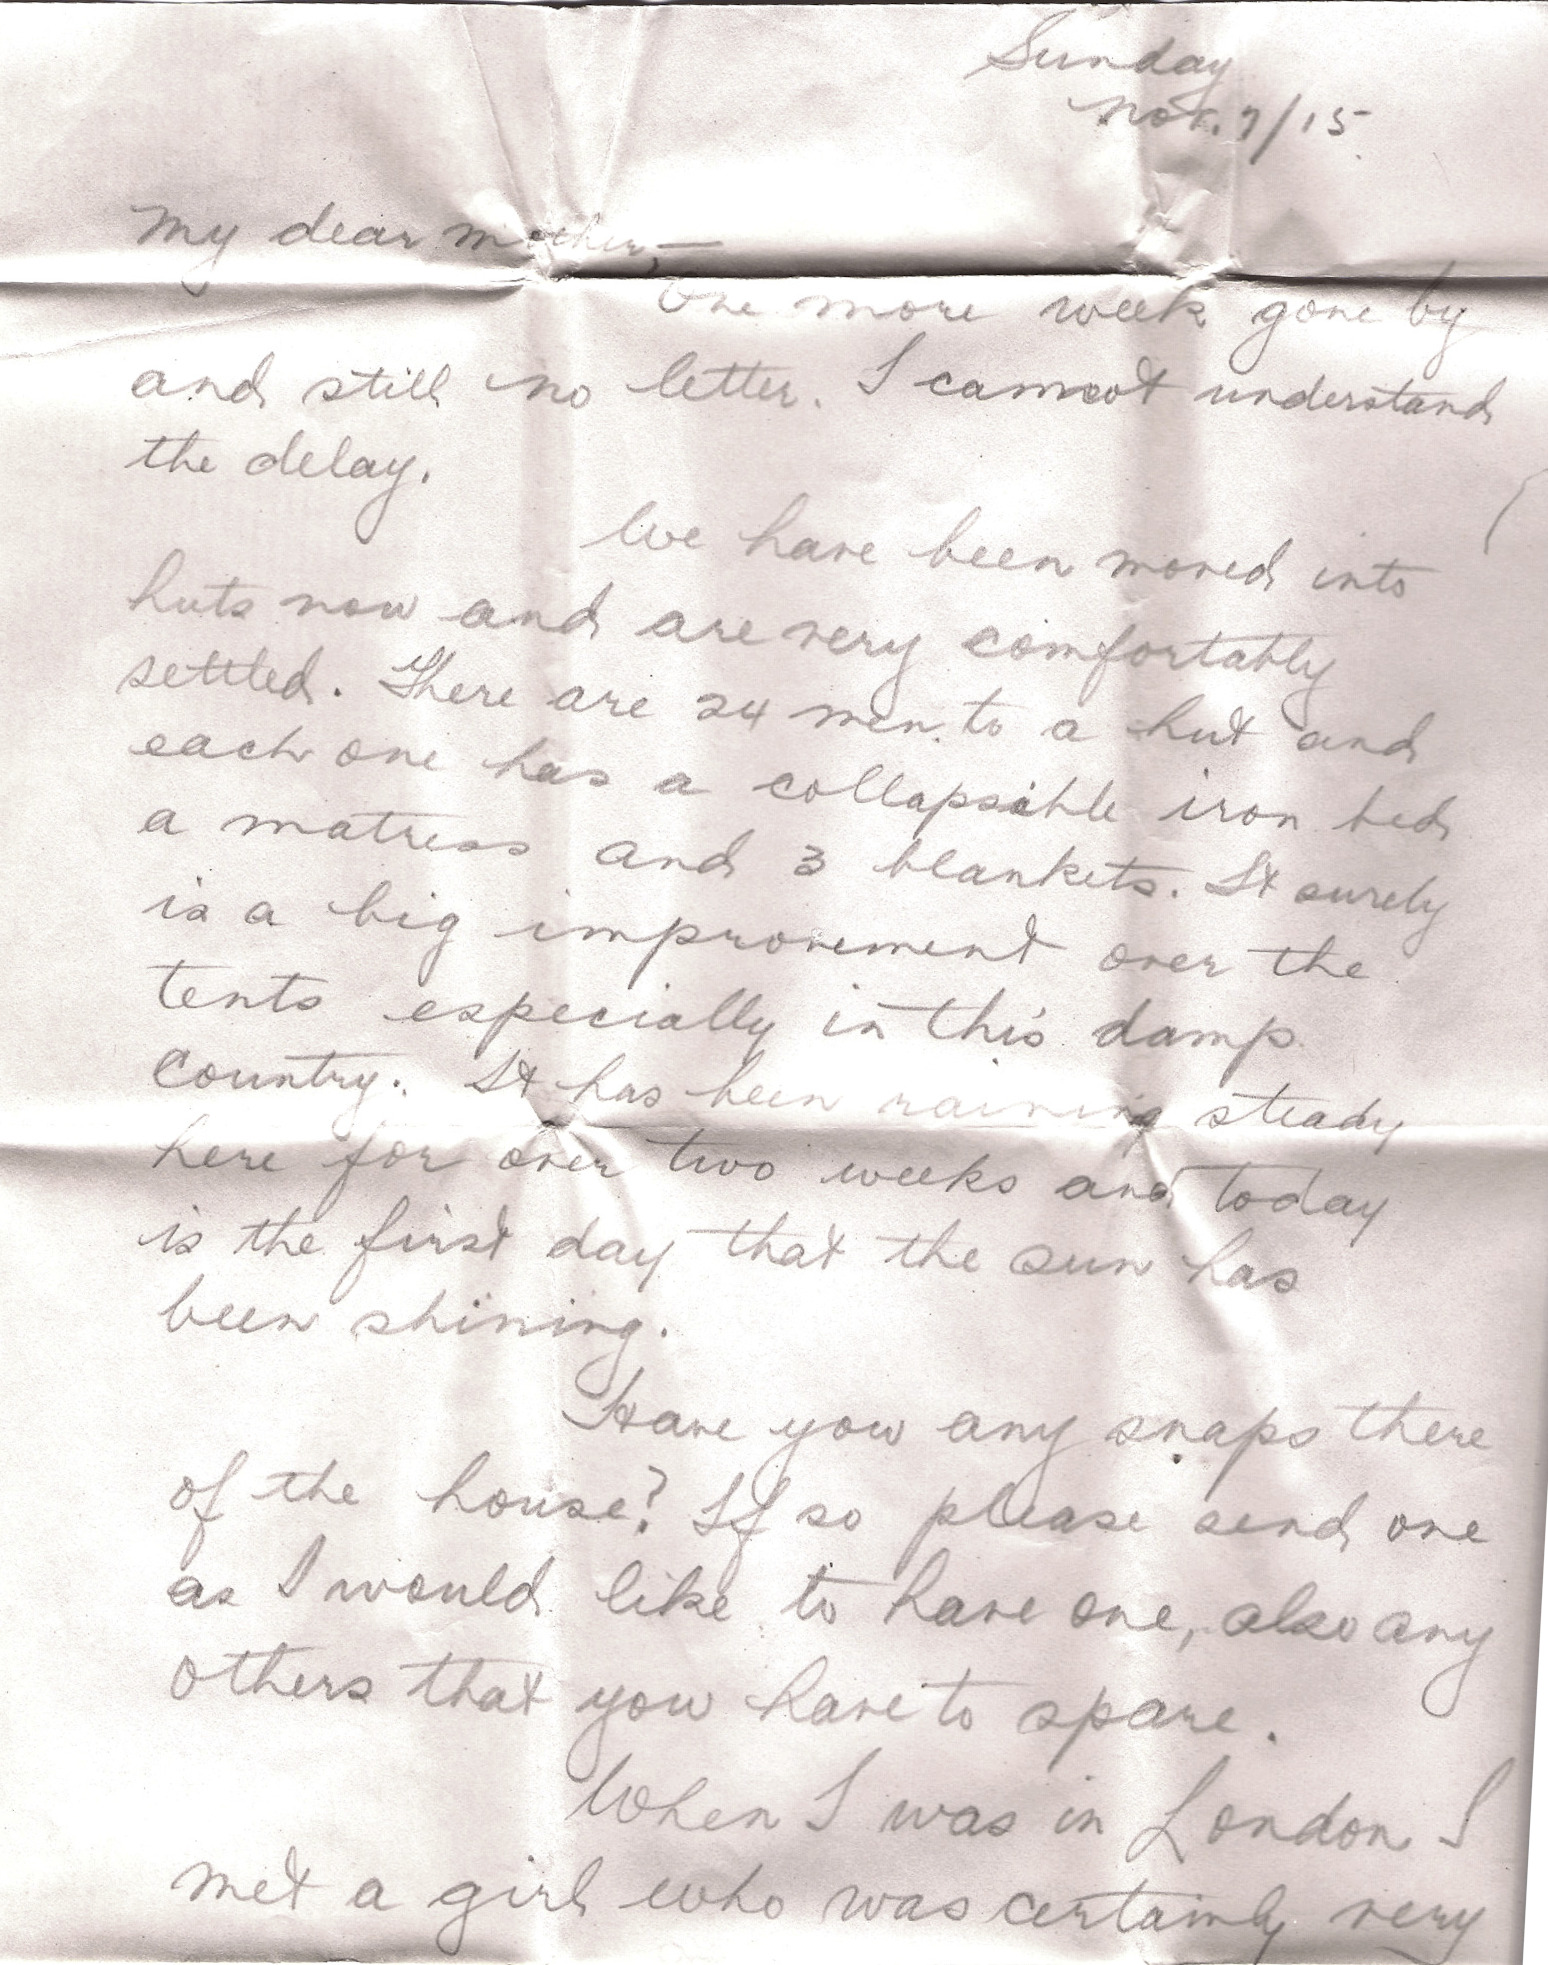 Sunday
Nov. 7/15.
My dear mother,—
One more week gone by
and still no letter. I cannot understand
the delay.
We have been moved into
huts now and are very comfortably
settled. There are 24 men to a hut and
each one has a collapsible iron bed
a matress and 3 blankets. It surely
is a big improvement over the
tents especially in this damp
country. It has been raining steady
here for over two weeks and today
is the first day that the sun has
been shining.
Have you any snaps there
of the house? If so please send one
as I would like to have one, also any
others that you have to spare.
When I was in London I
met a girl who was certainly very